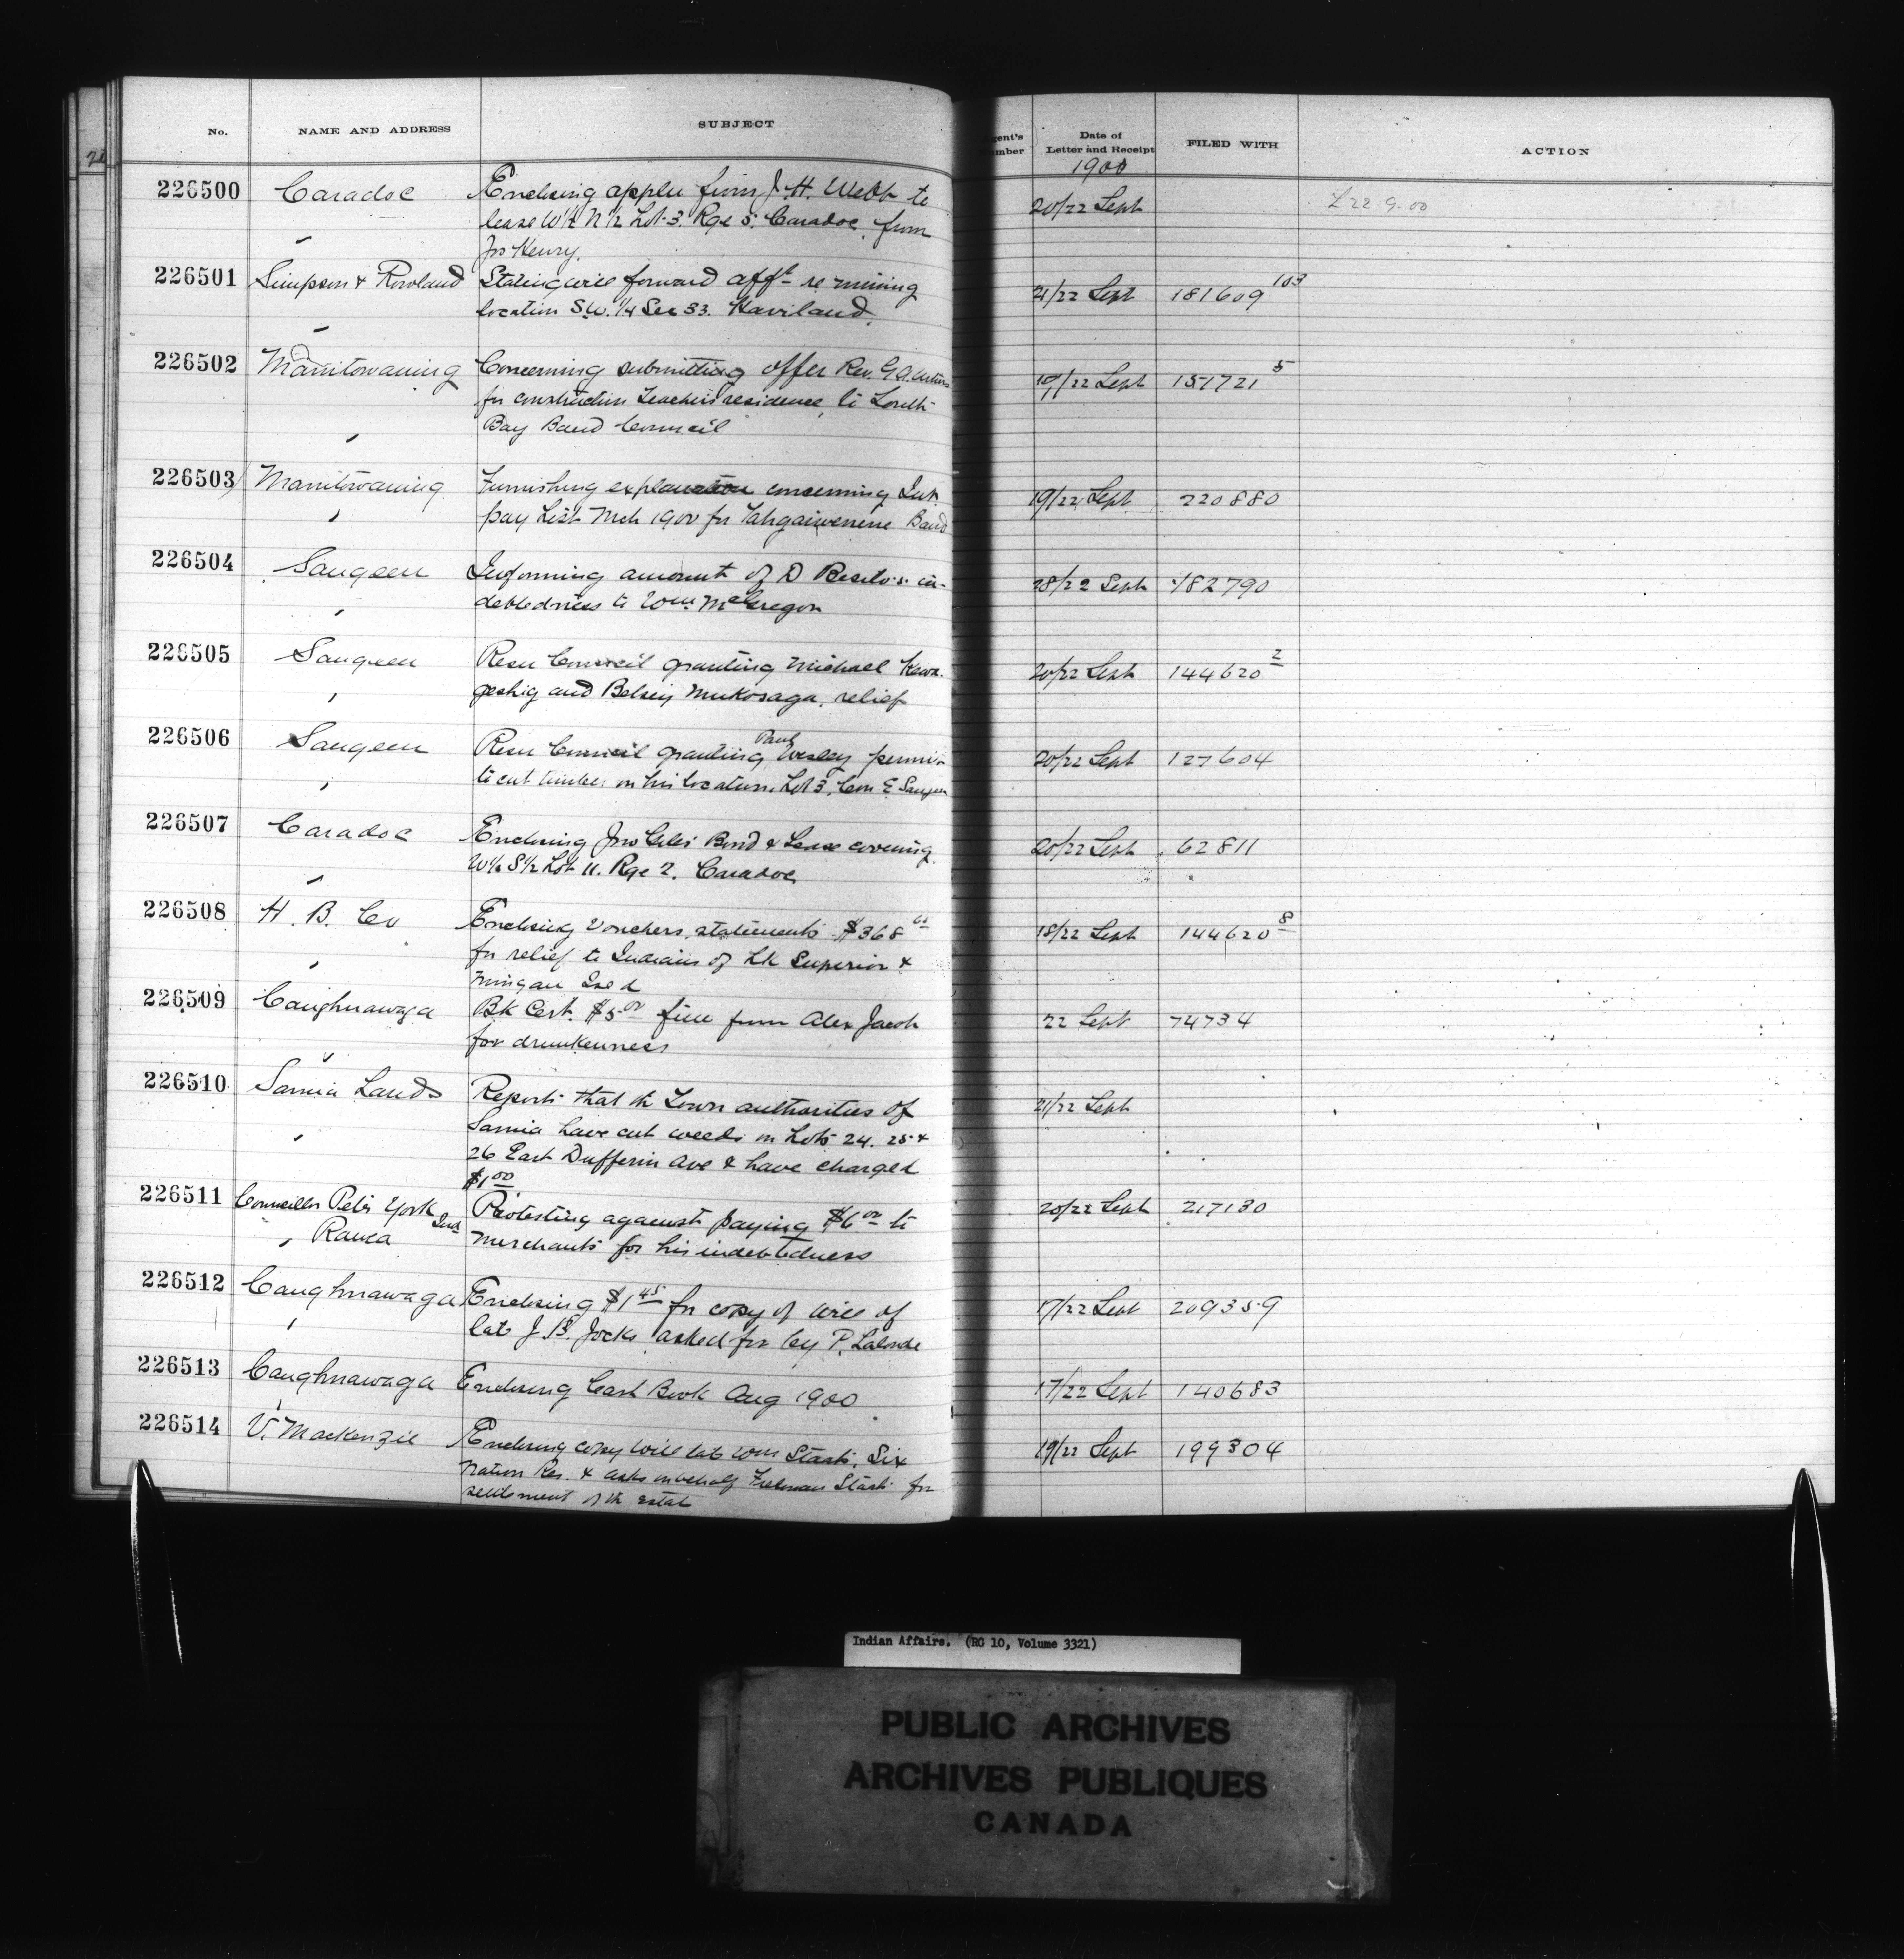 No. NAME AND ADDRESS SUBJECT gent's umber Date of Letter and Receipt FILED WITH ACTION
1900
226500 Caradoc Enclosing appln from J. H. Webb to 20/22 Sept L 22-9-00
lease W½ N½ Lot 3. Rge 5. Caradoc, from
Jno Henry.
226501 Simpson & Rowland Stating will forward afft re mining 21/22 Sept 181609 103
location S.W. ¼ Sec 33. Haviland.
226502 Manitowaning Concerning submitting offer Rev. G. A. 19/22 Sept 151721 5
for construction Teacher's residence, to South
Bay Band Council
226503 Manitowaning Furnishing explanation concerning Int. 19/22 Sept 220880
pay List Mch 1900 for Tahgaiwenene Band
226504 Saugeen Informing amount of D in- 28/22 Sept 182790
debtedness to Wm. McGregor
226505 Saugeen Resn Council granting Michael Kewa- 20/22 Sept 144620 2
geshig and Betsey Mukosaga, relief
226506 Saugeen Resn Council granting Paul Wesley permisn 20/22 Sept 127604
to cut timber on his location, Lot 3, Con E. Saugeen
226507 Caradoc Enclosing Jno Giles' Bond & Lease covering 20/22 Sept 62811
W½ S½ Lot 11. Rge 2. Caradoc
226508 H. B. Co Enclosing Vouchers, statements $368 18/22 Sept 144620 8
for relief to Indians of Lk Superior &
Mingan
226509 Caughnawaga Bk Cert. $5.00 fine from Alex Jacob 22 Sept 74734
for drunkenness
226510 Sarnia Lands Reports that the Town authorities of 21/22 Sept
Sarnia have cut weeds on Lots 24. 25 &
26 East Dufferin Ave & have charged
$1.00
226511 Councillor Peter York Protesting against paying $6.00 to 20/22 Sept 217130
Rama Ind merchants for his indebtedness
226512 Caughnawaga Enclosing $1.45 for copy of will of 17/22 Sept 209359
late J. B. Jocks asked for by P. Lalonde
226513 Caughnawaga Enclosing Cash Book Aug 1900 17/22 Sept 140683
226514 V. Mackenzie Enclosing copy will late Wm Staats, Six 19/22 Sept 199304
Nation Res. & asks on behalf Freeman Staats for
settlement of the estate
Indian Affairs. (RG 10, Volume 3321)
PUBLIC ARCHIVES
ARCHIVES PUBLIQUES
CANADA